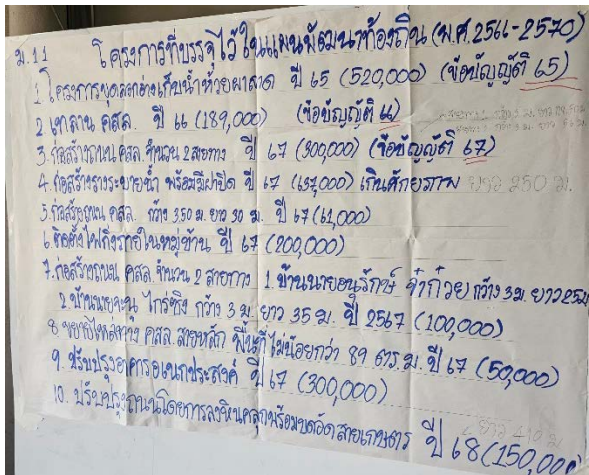 ม.11 โครงการที่บรรจุไว้ในแผนพัฒนาท้องถิ่น (พ.ศ.2566-2570)
1. โครงการขุดลอกอ่างเก็บน้ำห้วยผาลาด ปี 65 (520,000) (ข้อบัญญัติ 65)
2. เทลาน คสล. ปี 66 (189,000) (ข้อบัญญัติ 66)
3. ก่อสร้างถนน คสล. จำนวน 2 สายทาง ปี 67 (300,000) (ข้อบัญญัติ 67)
4. ก่อสร้างรางระบายน้ำ พร้อมมีฝาปิด ปี 67 (637,000) เกินศักยภาพ ยาว 250 ม.
5. ก่อสร้างถนน คสล. กว้าง 3.50 ม. ยาว 30 ม. ปี 67 (61,000)
6. ติดตั้งไฟกิ่งภายในหมู่บ้าน ปี 67 (200,000)
7. ก่อสร้างถนน คสล. จำนวน 2 สายทาง 1. บ้านนายอนุรักษ์ จำก๋วย กว้าง 3 ม. ยาว 25 ม
2. บ้านนาย ไกรซิง กว้าง 3 ม. ยาว 35 ม. ปี 2567 (100,000)
8. ขยายไหล่ทาง คสล. สายหลัก พื้นที่ไม่น้อยกว่า 89 ตร.ม. ปี 67 (50,000)
9. ปรับปรุงอาคารอเนกประสงค์ ปี 67 (300,000)
10. ปรับปรุงถนนโดยการลงหินคลุกพร้อมบดอัดสายเกษตร ปี 68 (150,000)
ยาว 410 ม